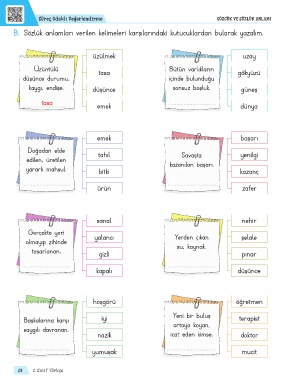 Süreç Odaklı Değerlendirme
SÖZCÜK VE SÖZLÜK ANLAMI
B. Sözlük anlamları verilen kelimeleri karşılarındaki kutucuklardan bularak yazalım.
Üzüntülü
düşünce durumu,
kaygı, endişe.
tasa
üzülmek
tasa
düşünce
emek
Bütün varlıkların
içinde bulunduğu
sonsuz boşluk.
uzay
gökyüzü
güneş
dünya
Doğadan elde
edilen, üretilen
yararlı mahsul.
emek
tahıl
bitki
ürün
Savaşta
kazanılan başarı.
başarı
yenilgi
kazanç
zafer
Gerçekte yeri
olmayıp zihinde
tasarlanan.
sanal
yalancı
gizli
kapalı
Yerden çıkan
su, kaynak.
nehir
şelale
pınar
düşünce
Başkalarına karşı
saygılı davranan.
hoşgörü
iyi
nazik
yumuşak
Yeni bir buluş
ortaya koyan,
icat eden kimse.
öğretmen
terapist
doktor
mucit
2. Sınıf Türkçe